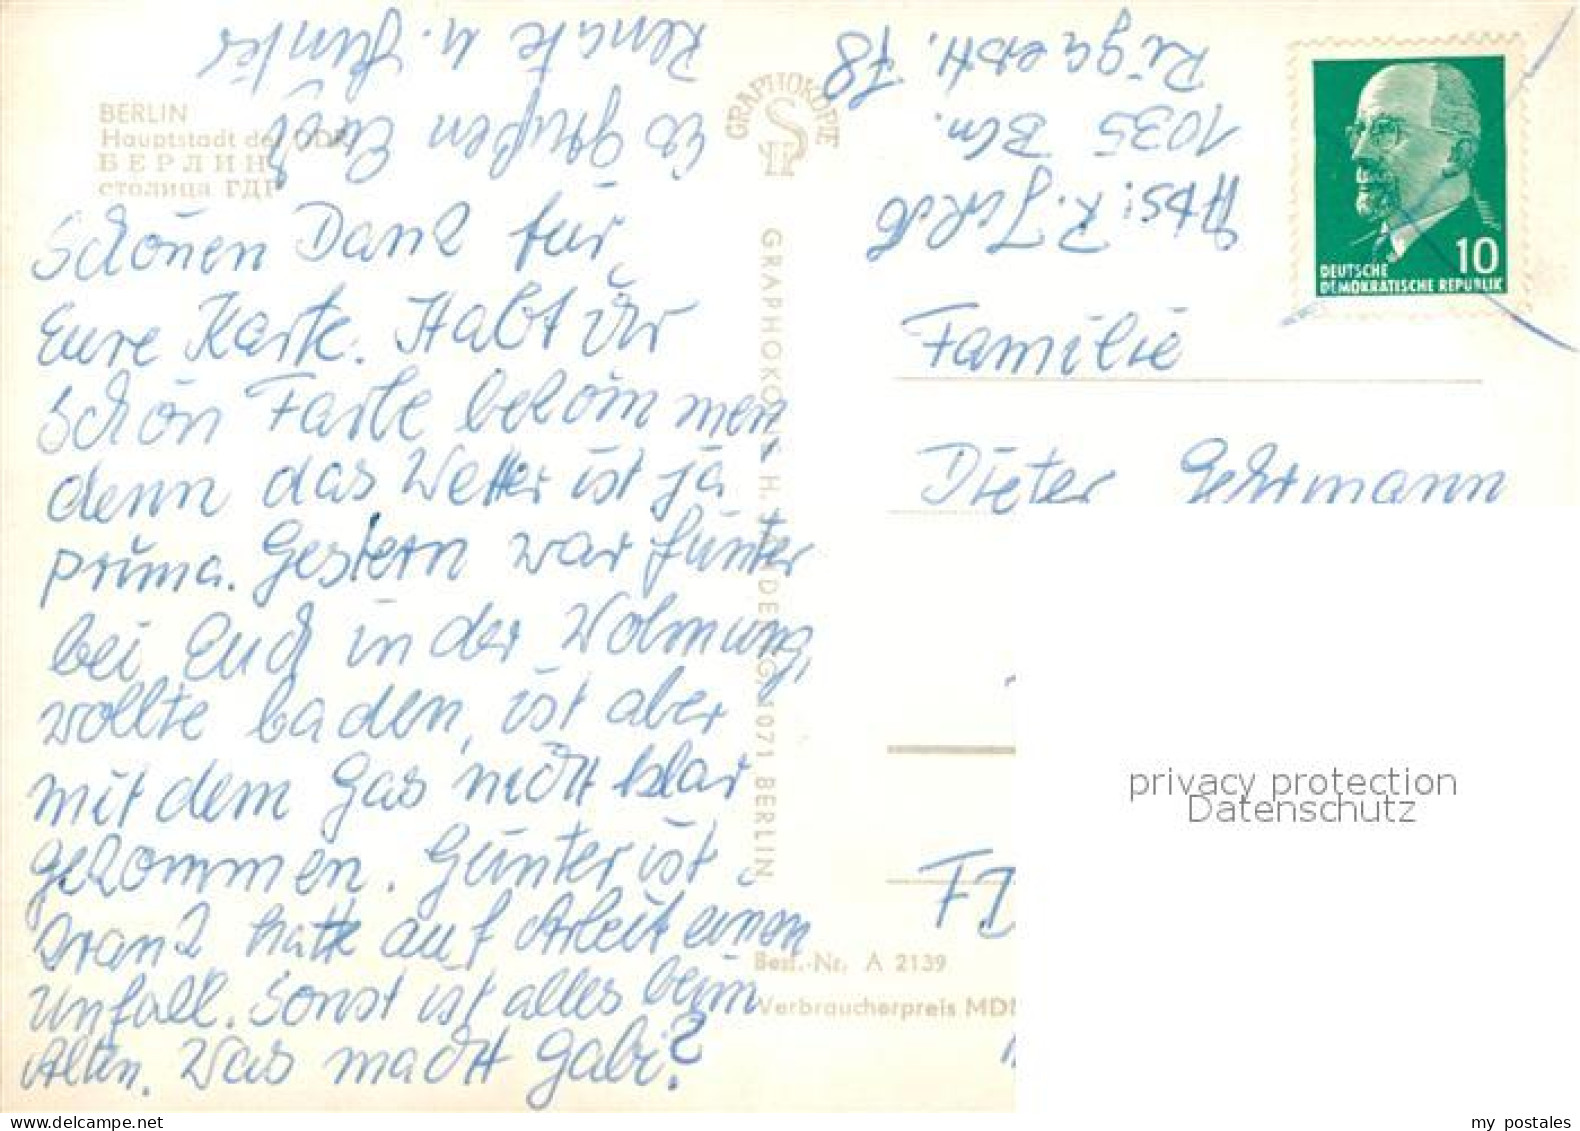 BERLIN
Hauptstadt der DDR
БЕРЛИН
столица ГДР
Schönen Dank für
Eure Karte. Habt ihr
schön Farbe bekommen,
denn das Wetter ist ja
prima. Gestern war Günter
bei Euch in der Wohnung,
wollte baden, ist aber
mit dem Gas nicht klar
gekommen. Günter ist
krank hatte auf Arbeit einen
Unfall. Sonst ist alles beim
Alten. Was macht Gabi?
Es grüßen Euch
Renate u. Günter
GRAPHOKOPIE
H
GRAPHOKOPIE H. 1071 BERLIN
Abs: R.
1035 Bln.
Rigaerstr. 78
DEUTSCHE
DEMOKRATISCHE REPUBLIK
10
Familie
Dieter Gehrmann
privacy protection
Datenschutz
Best.-Nr. A 2139
Verbraucherpreis MDN
my postales